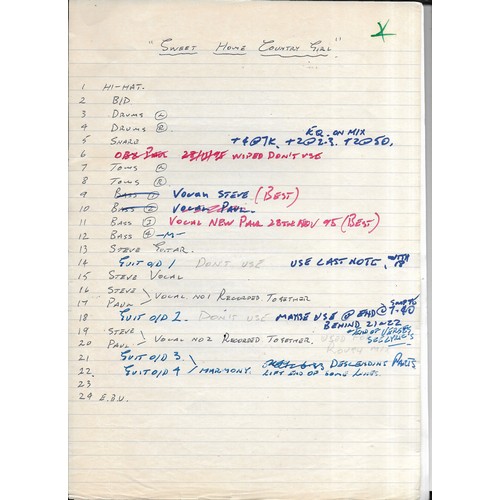 "Sweet Home Country Girl"
1 HI-HAT.
2 B/D
3 DRUMS Ⓛ
4 DRUMS Ⓡ
EQ. ON MIX
5 SNARE +4@7K. +2@2.3. +2@50.
6 23/11/95 WIPED DON'T USE
7 TOMS Ⓛ
8 TOMS Ⓡ
9 BASS ① VOCAL STEVE (BEST)
10 BASS ② VOCAL PAUL.
11 BASS ③ VOCAL NEW PAUL 28TH NOV 95 (BEST)
12 BASS ④ -M-
13 STEVE GUITAR.
14 GUIT O/D 1 DON'T USE USE LAST NOTE. WITH 18
15 STEVE VOCAL
16 STEVE
17 PAUL VOCAL NO1 RECORDED TOGETHER
18 GUIT O/D 2. DON'T USE MAYBE USE @ END @ 7-40
BEHIND 21+22
+ END OF VERSES
19 STEVE
20 PAUL VOCAL NO2 RECORDED TOGETHER. USED
SEE LYRICS
ROUGH MIX
21 GUIT O/D 3
22 GUIT O/D 4 HARMONY. DESCENDING PARTS
LIFT END OF SOME LINES.
23
24 E.B.U.